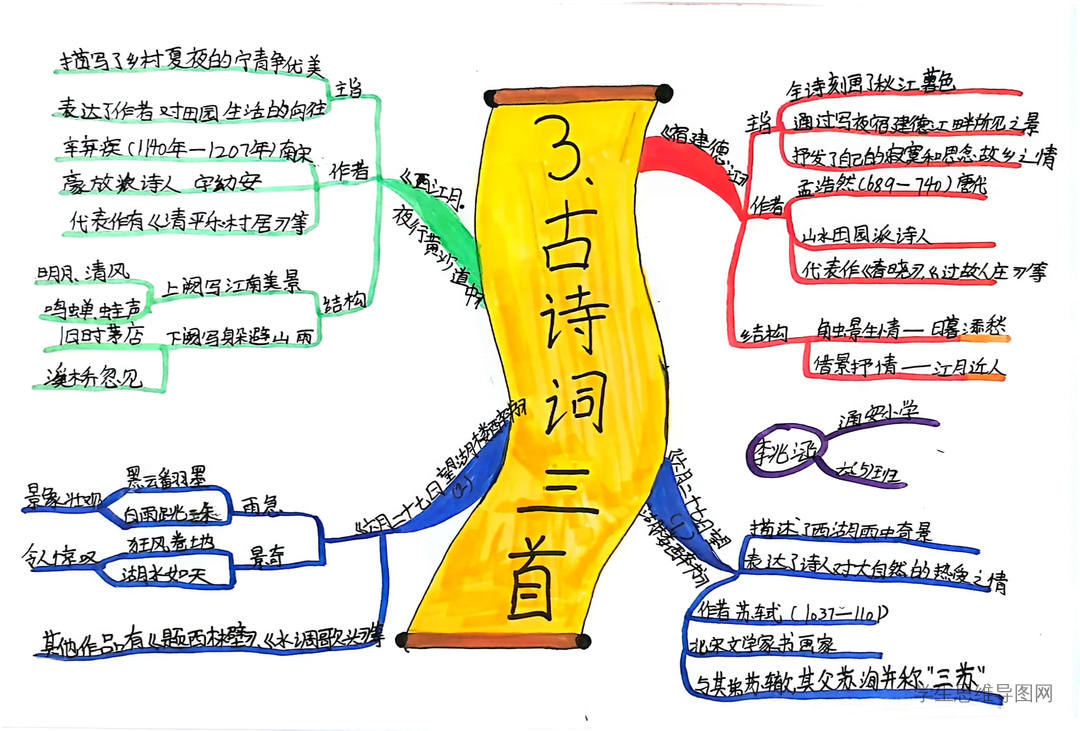 3、古诗词三首
《宿建德江》
主旨
全诗刻画了秋江暮色
通过写夜宿建德江畔所见之景
抒发了自己的寂寞和思念故乡之情
作者
孟浩然(689—740)唐代
山水田园派诗人
代表作《春晓》《过故人庄》等
结构
触景生情——日暮添愁
借景抒情——江月近人
通安小学
六5班
《六月二十七日望
湖楼醉书》
(1)
描述了西湖雨中奇景
表达了诗人对大自然的热爱之情
作者 苏轼(1037—1101)
北宋文学家书画家
与其弟苏辙,其父苏洵并称"三苏"
《西江月·
夜行黄沙道中》
主旨
描写了乡村夏夜的宁静优美
表达了作者对田园生活的向往
作者
辛弃疾(1140年—1207年)南宋
豪放派诗人 字幼安
代表作有《清平乐·村居》等
结构
上阙写江南美景
明月、清风
鸣蝉、蛙声
下阙写躲避山雨
旧时茅店
溪桥忽见
《六月二十七日望湖楼醉书》
(2)
雨急
景象壮观
黑云翻墨
白雨跳珠
景奇
令人惊叹
狂风卷地
湖水如天
其他作品有《题西林壁》《水调歌头》等
学生思维导图网